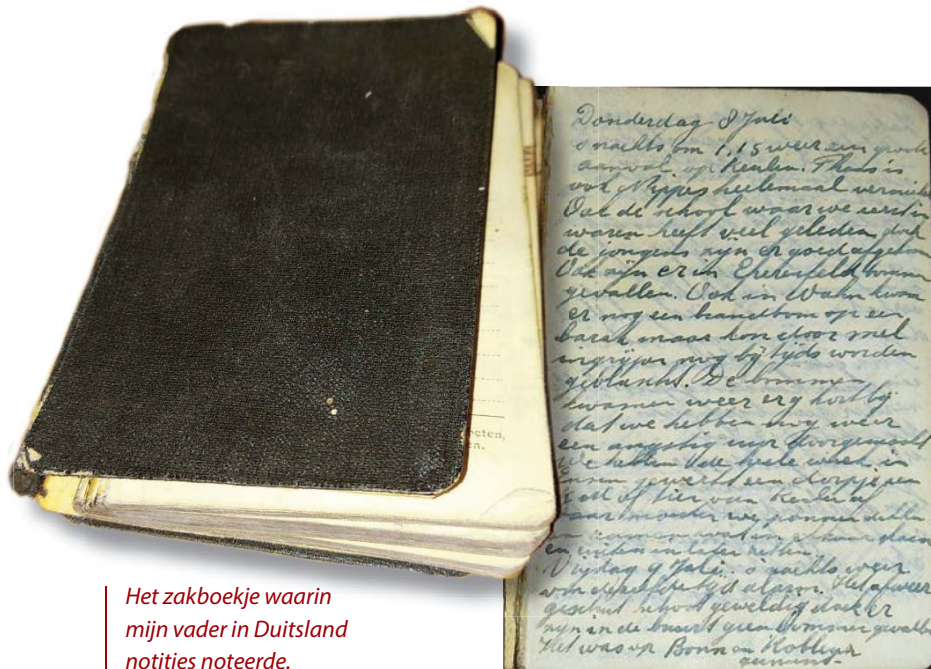 Donderdag 8 Juli
s nachts om 1,15 weer een groote
aanval op Keulen. Thans is
ook Nippes heelemaal
Ook de school waar we eerst in
waren heeft veel geleden, doch
de jongens zijn er goed afgekomen
Ook zijn er in Ehrenfeld bommen
gevallen. Ook in Wahn kwam
er nog een brandbom op een
barak maar kon door snel
ingrijpen nog bij tijds worden
geblusht. De bommen
kwamen weer erg kort bij
dat we hebben nog weer
een angstig uur doorgemaakt
We hebben de heele week in
gewerkt een dorpje een
of vier van Keulen af
waar moesten we pannen
in elkaar
en ruiten in laten zetten.
Vrijdag 9 Juli. s nachts weer
voor dezelfde tijd alarm. Het afweer
geschut schoot geweldig doch er
zijn in de buurt geen bommen gevallen
Het was op Bonn en Koblenz
gemunt.
eten,
en.
Het zakboekje waarin
mijn vader in Duitsland
notities noteerde.